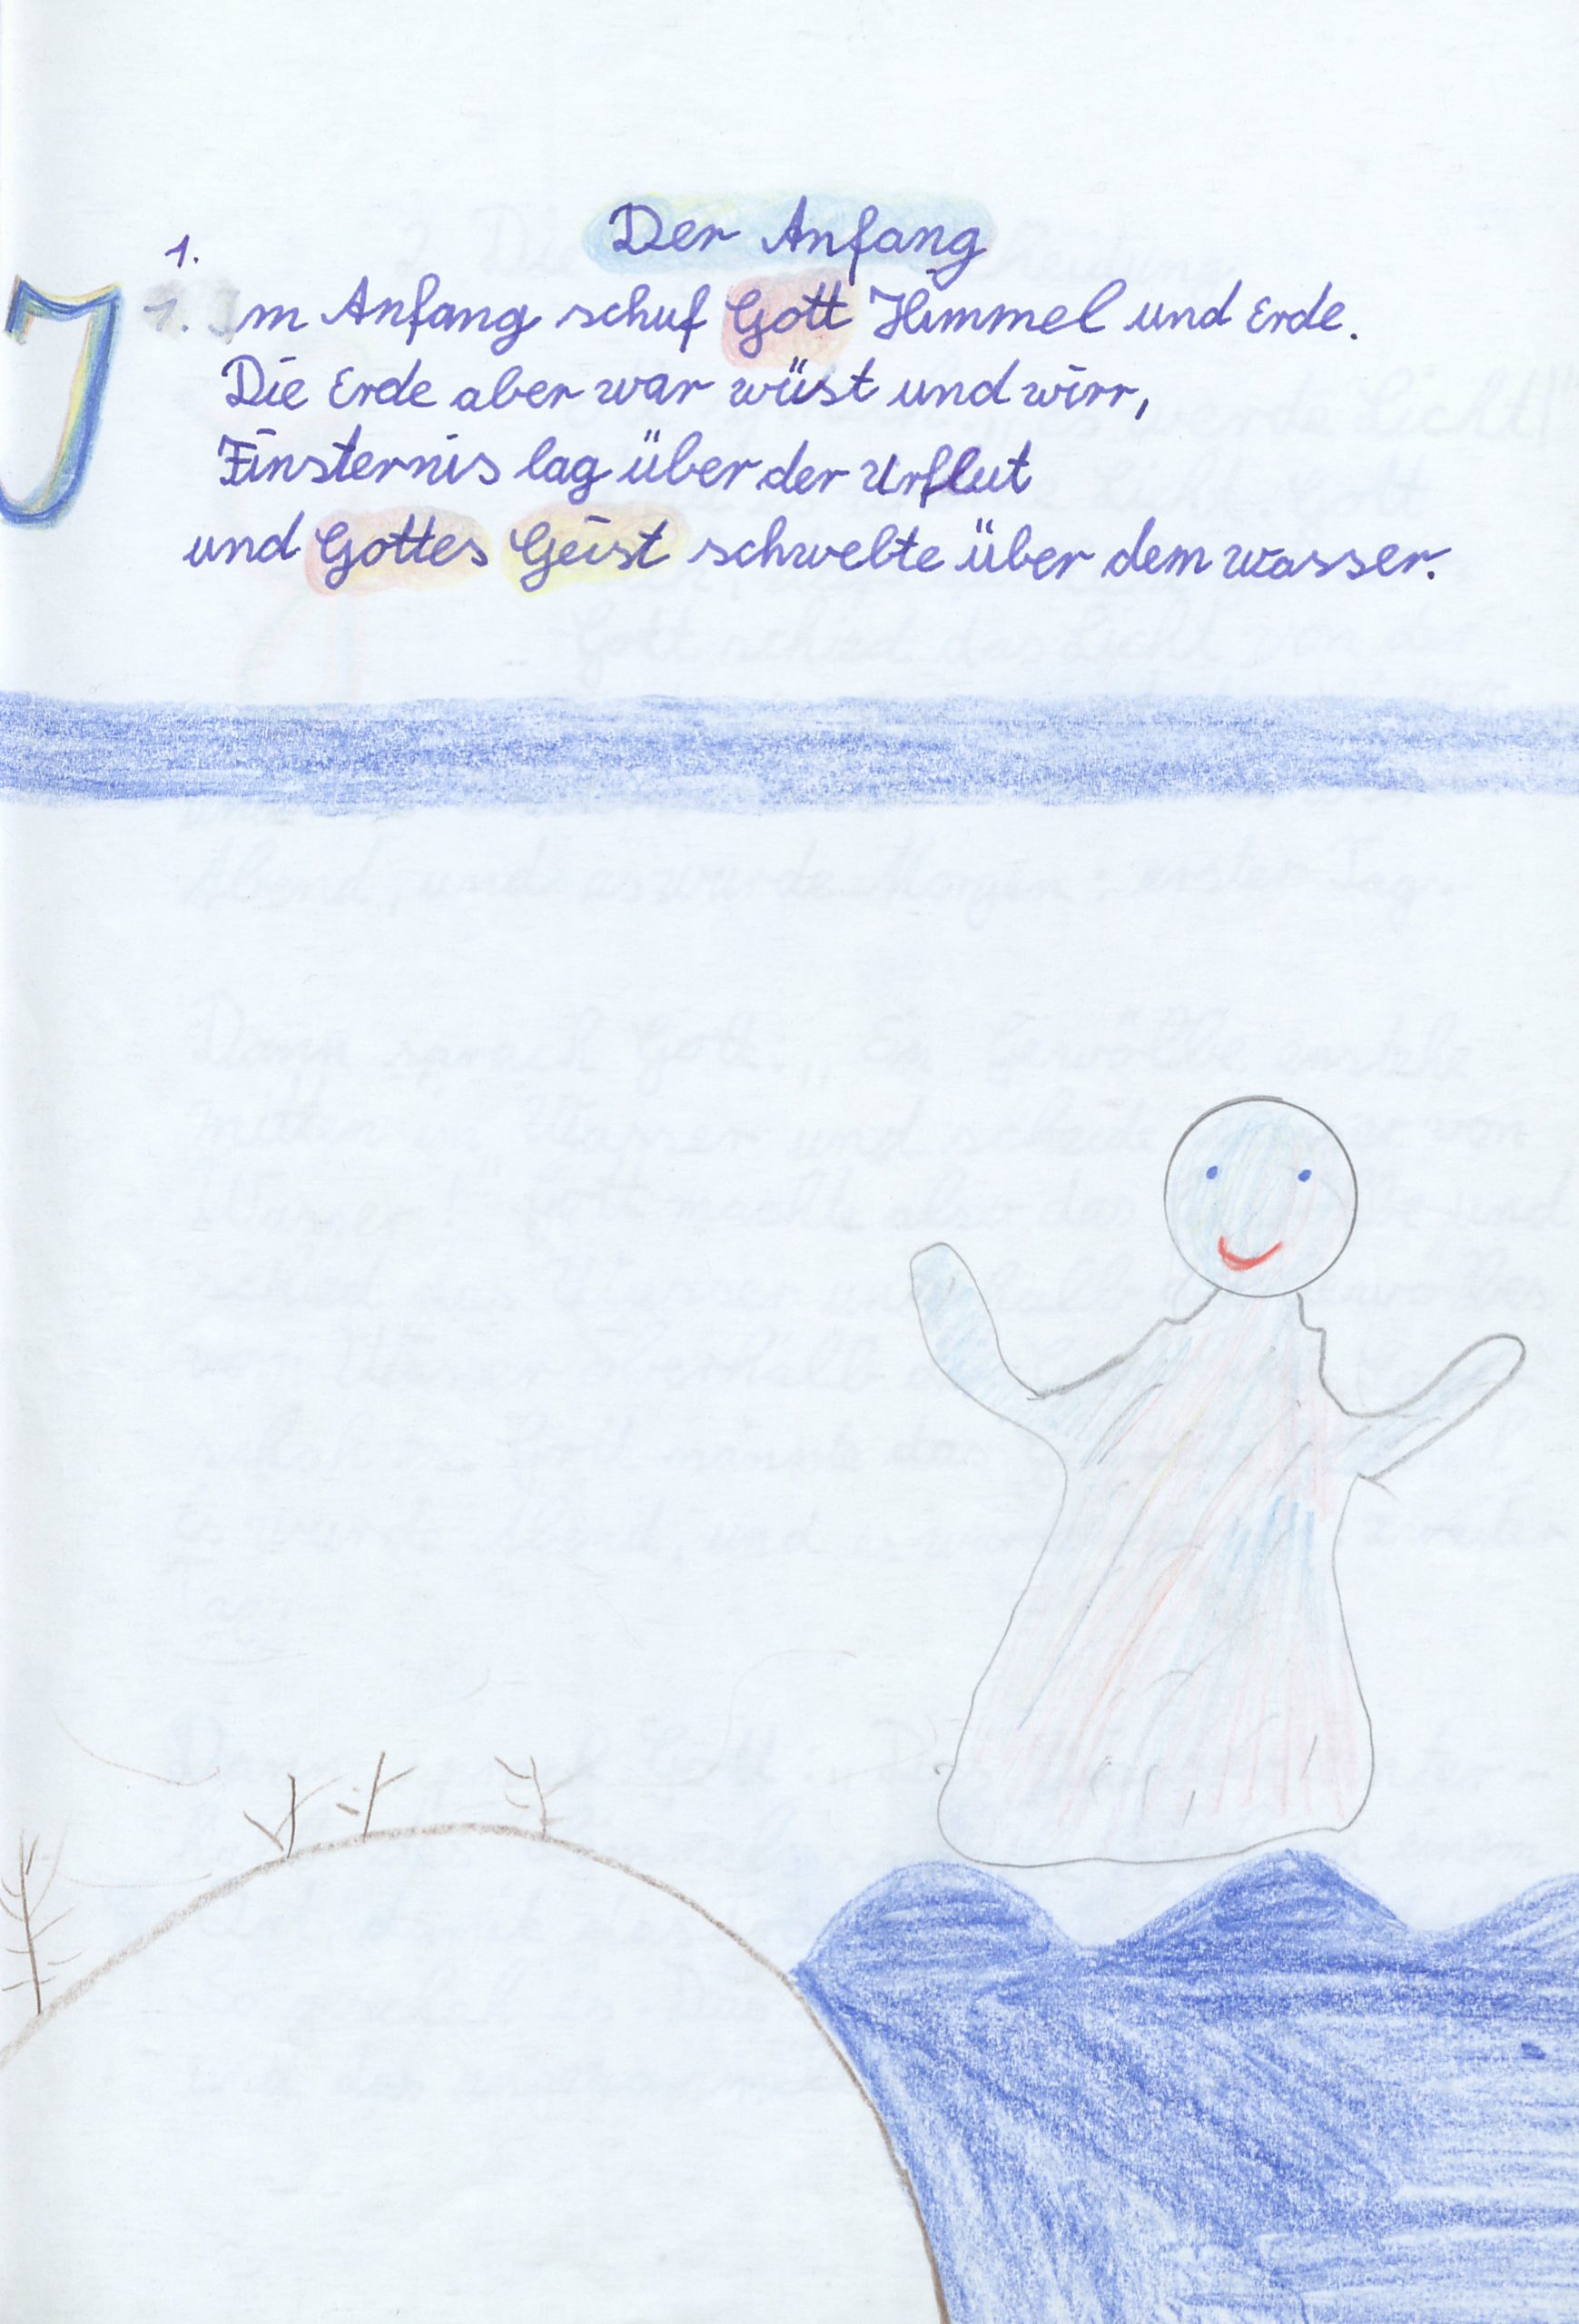 Der Anfang
1.
Im Anfang schuf Gott Himmel und Erde.
Die Erde aber war wüst und wirr,
Finsternis lag über der Urflut
und Gottes Geist schwebte über dem wasser.